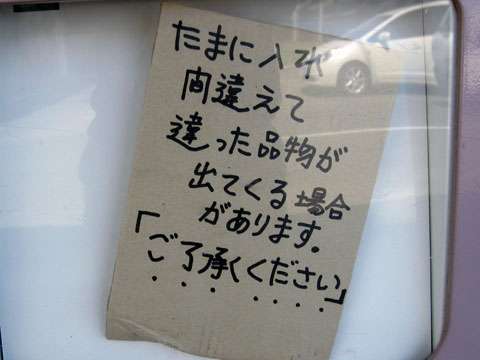 たまに入れ
間違えて
違った品物が
出てくる場合
があります。
「ご了承ください」